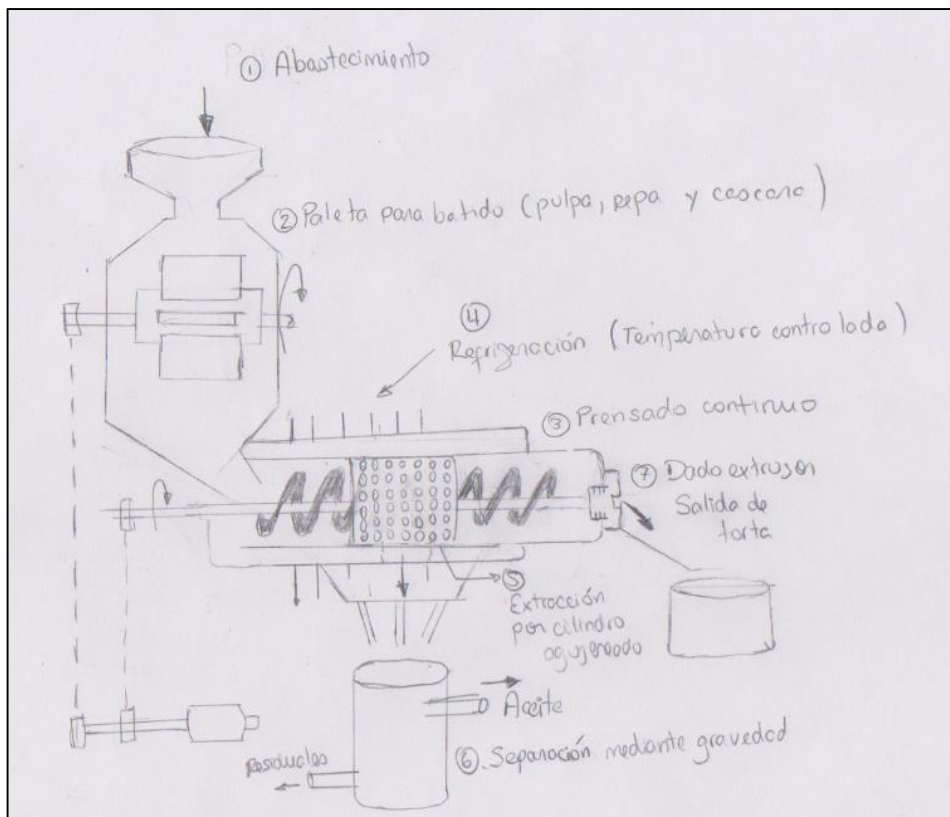 ① Abastecimiento
② Paleta para batido (pulpa, pepa y cascara)
④
Refrigeración (Temperatura controlada)
③ Prensado continuo
⑦ Dado extrusor
Salida de
torta
⑤
Extracción
por cilindro
agujereado
Aceite
⑥ Separación mediante gravedad
Residuales